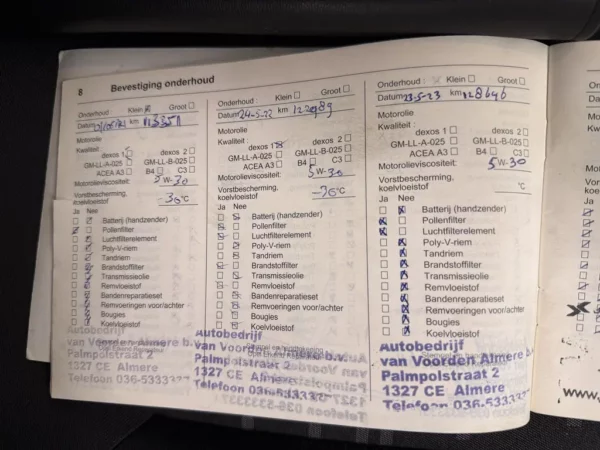 8 Bevestiging onderhoud
Onderhoud : Klein Groot
Datum km 113351
Motorolie
Kwaliteit :
dexos 1 dexos 2
GM-LL-A-025 GM-LL-B-025
ACEA A3 B4 C3
Motorolieviscositeit: 5W-30
Vorstbescherming,
koelvloeistof -36 °C
Ja Nee
Batterij (handzender)
Pollenfilter
Luchtfilterelement
Poly-V-riem
Tandriem
Brandstoffilter
Transmissieolie
Remvloeistof
Bandenreparatieset
Remvoeringen voor/achter
Bougies
Koelvloeistof
Autobedrijf
van Voorden Almere b.v.
Palmpolstraat 2
1327 CE Almere
Telefoon 036-5333
Onderhoud : Klein Groot
Datum 24-5-22 km
Motorolie
Kwaliteit :
dexos 1 dexos 2
GM-LL-A-025 GM-LL-B-025
ACEA A3 B4 C3
Motorolieviscositeit: 5W-30
Vorstbescherming,
koelvloeistof °C
Ja Nee
Batterij (handzender)
Pollenfilter
Luchtfilterelement
Poly-V-riem
Tandriem
Brandstoffilter
Transmissieolie
Remvloeistof
Bandenreparatieset
Remvoeringen voor/achter
Bougies
Koelvloeistof
Autobedrijf
van Voorden Almere b.v.
Palmpolstraat 2
1327 CE Almere
Telefoon 036-5333
Onderhoud : Klein Groot
Datum 23-5-23 km 128646
Motorolie
Kwaliteit :
dexos 1 dexos 2
GM-LL-A-025 GM-LL-B-025
ACEA A3 B4 C3
Motorolieviscositeit: 5W-30
Vorstbescherming,
koelvloeistof °C
Ja Nee
Batterij (handzender)
Pollenfilter
Luchtfilterelement
Poly-V-riem
Tandriem
Brandstoffilter
Transmissieolie
Remvloeistof
Bandenreparatieset
Remvoeringen voor/achter
Bougies
Koelvloeistof
Autobedrijf
van Voorden Almere b.v.
Palmpolstraat 2
1327 CE Almere
Telefoon 036-5333330
Ja
www.